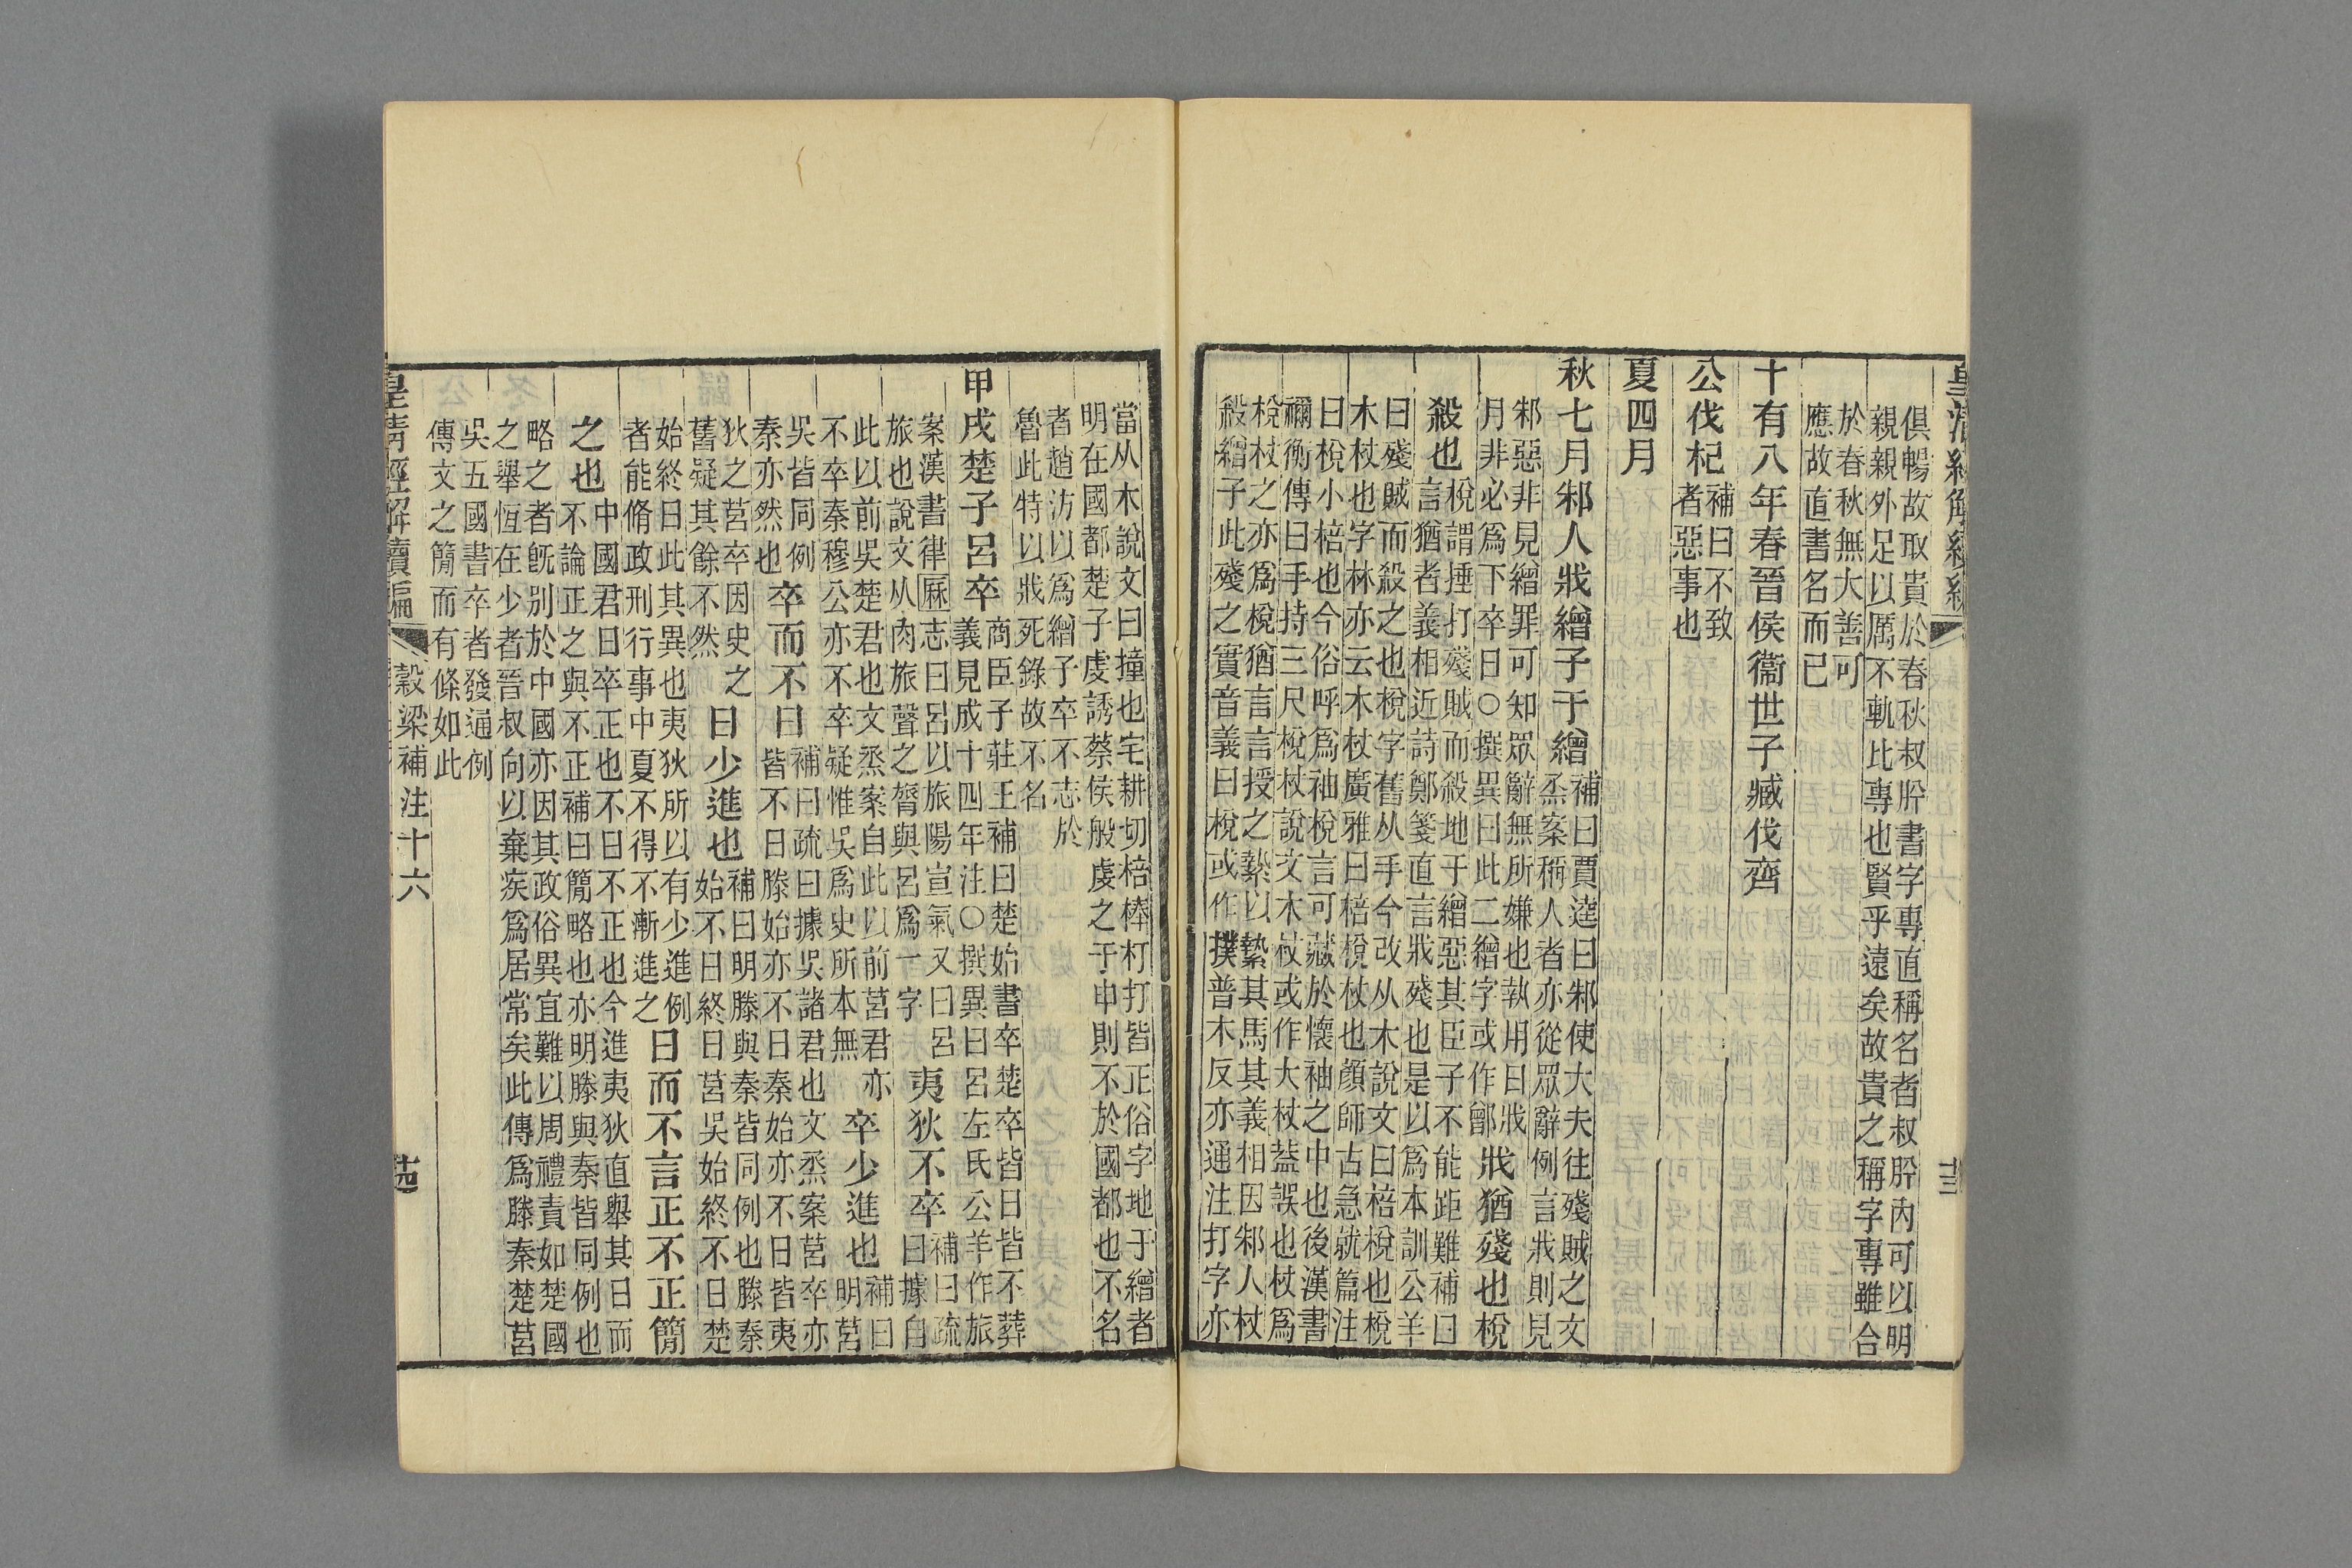 皇清經解續編
俱暢故取貴於春秋叔肸書字專直稱名者叔肸內可以明
親親外足以厲不軌比專也賢乎遠矣故貴之稱字專雖合
於春秋無大善可
應故直書名而已
十有八年春晉侯衞世子臧伐齊
公伐杞補曰不致
者惡事也
夏四月
秋七月邾人戕繒子于繒補曰賈逵曰邾使大夫往殘賊之文
烝案稱人者亦從眾辭例言戕則見
邾惡非見繒罪可知眾辭無所嫌也執用日戕
月非必爲下卒日○撰異曰此二繒字或作鄫戕猶殘也梲
殺也梲謂捶打殘賊而殺地于繒惡其臣子不能距難補曰
言猶者義相近詩鄭箋直言戕殘也是以爲本訓公羊
曰殘賊而殺之也梲字舊从手今改从木說文曰棓梲也梲
木杖也字林亦云木杖廣雅曰棓梲杖也顏師古急就篇注
曰梲小棓也今俗呼爲袖梲言可藏於懷袖之中也後漢書
禰衡傳曰手持三尺梲杖說文木杖或作大杖蓋誤也杖爲
梲杖之亦爲梲猶言言授之縶以縶其馬其義相因邾人杖
殺繒子此殘之實音義曰梲或作撲普木反亦通注打字亦
當从木說文曰撞也宅耕切棓棒朾打皆正俗字地于繒者
明在國都楚子虔誘蔡侯般虔之于申則不於國都也不名
者趙汸以爲繒子卒不志於
魯此特以戕死錄故不名
甲戌楚子呂卒商臣子莊王補曰楚始書卒楚卒皆日皆不葬
義見成十四年注○撰異曰呂左氏公羊作旅
案漢書律厤志曰呂以旅陽宣氣又曰呂
旅也說文从肉旅聲之膂與呂爲一字夷狄不卒補曰疏
曰據自
此以前吳楚君也文烝案自此以前莒君亦
不卒秦穆公亦不卒疑惟吳爲史所本無卒少進也補曰
明莒
吳皆同例卒而不日補曰疏曰據吳諸君也文烝案莒卒亦
秦亦然也皆不日滕始亦不日秦始亦不日皆夷
狄之莒卒因史之
舊疑其餘不然日少進也補曰明滕與秦皆同例也滕秦
始不日終日莒吳始終不日楚
始終日此其異也夷狄所以有少進例
者能脩政刑行事中夏不得不漸進之日而不言正不正簡
之也中國君日卒正也不日不正也今進夷狄直舉其日而
不論正之與不正補曰簡略也亦明滕與秦皆同例也
略之者旣別於中國亦因其政俗異宜難以周禮責如楚國
之舉恆在少者晉叔向以棄疾爲居常矣此傳爲滕秦楚莒
吳五國書卒者發通例
傳文之簡而有條如此
皇清經解續編 穀梁補注十六